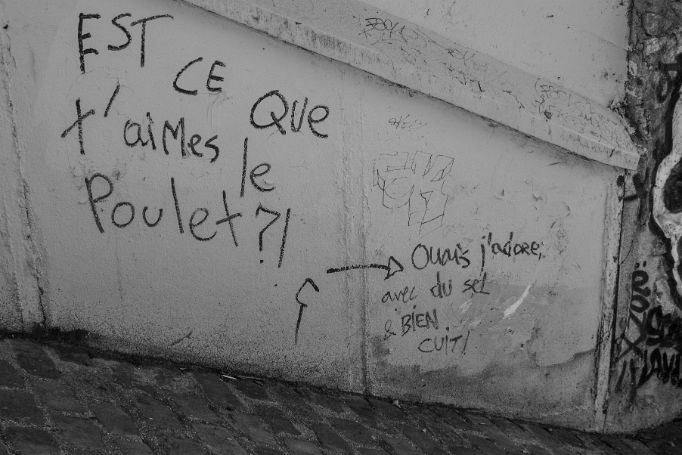 EST
CE
QUE
t'aimes
le
Poulet?!
Ouais j'adore,
avec du sel
& BIEN
CUIT!